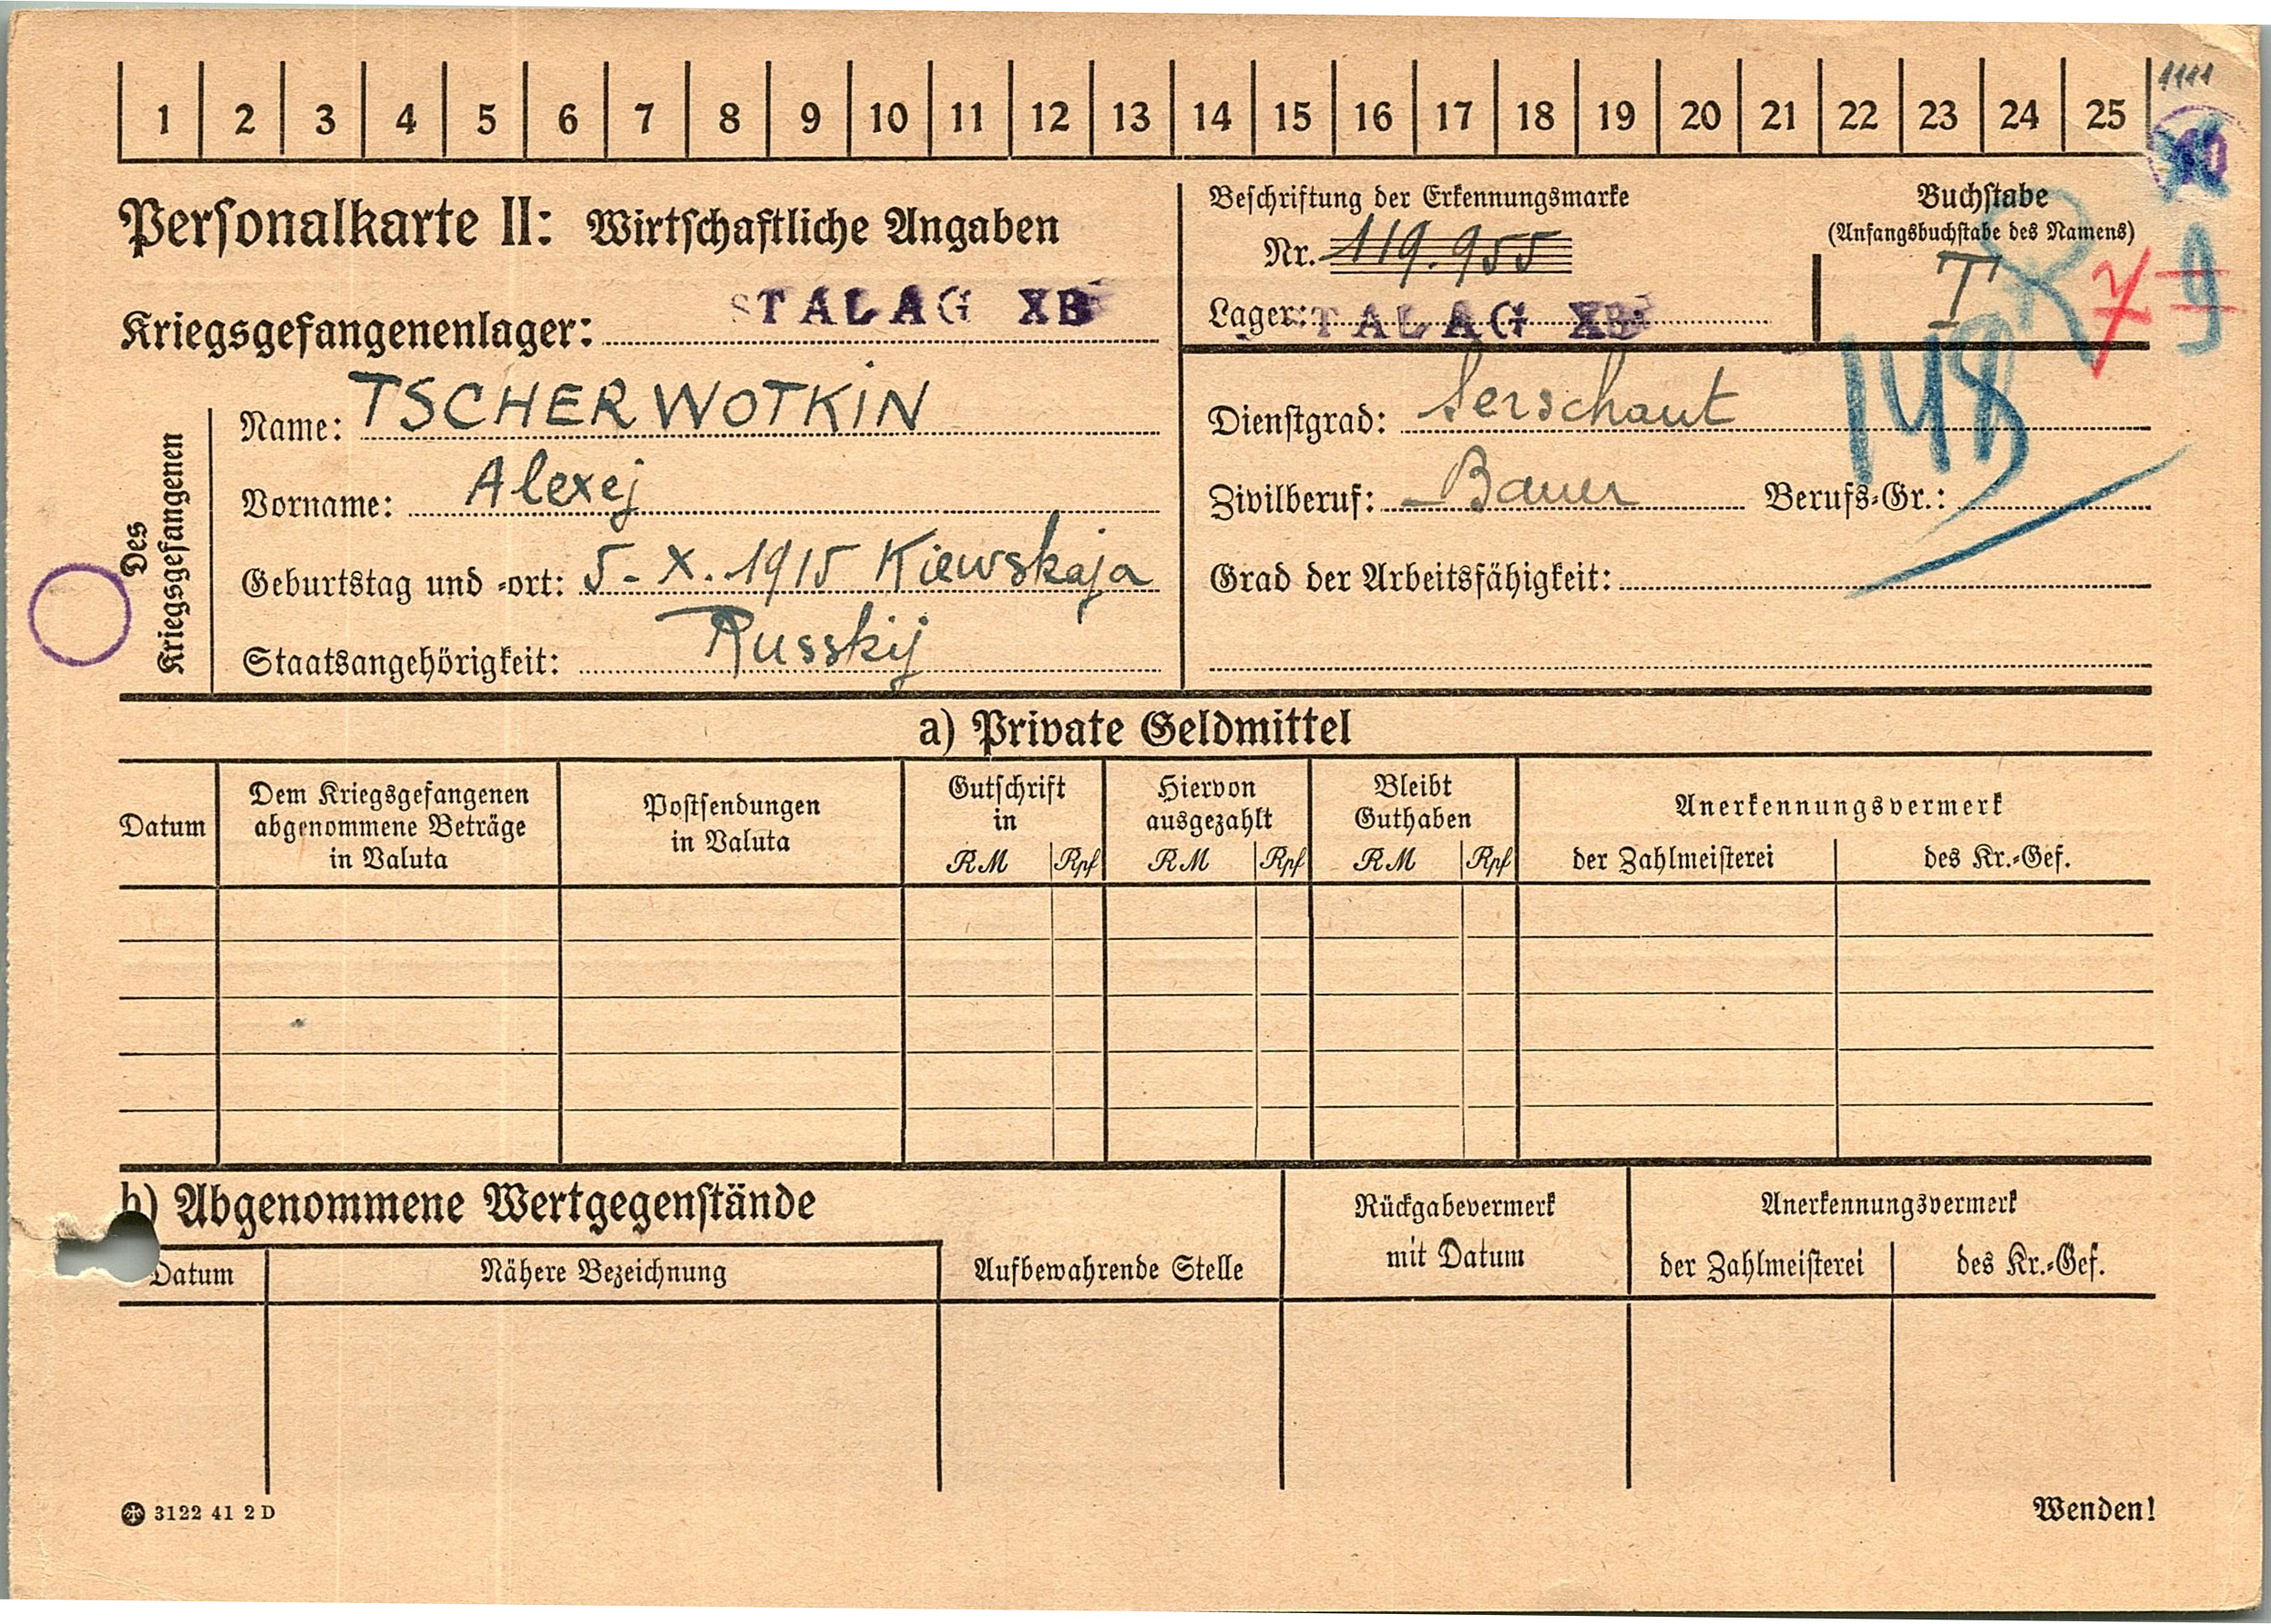 1 2 3 4 5 6 7 8 9 10 11 12 13 14 15 16 17 18 19 20 21 22 23 24 25
1111
Personalkarte II: Wirtschaftliche Angaben
Kriegsgefangenenlager: STALAG XB
Beschriftung der Erkennungsmarke
Nr. 119.955
Lager: STALAG XB
Buchstabe
(Anfangsbuchstabe des Namens)
T
7 9
148
Des Kriegsgefangenen
Name: TSCHERWOTKIN
Vorname: Alexej
Geburtstag und -ort: 5-X.1915 Kiewskaja
Staatsangehörigkeit: Russkij
Dienstgrad: Serschant
Zivilberuf: Bauer Berufs-Gr.:
Grad der Arbeitsfähigkeit:
a) Private Geldmittel
Datum
Dem Kriegsgefangenen
abgenommene Beträge
in Valuta
Postsendungen
in Valuta
Gutschrift
in
RM Rpf
Hiervon
ausgezahlt
RM Rpf
Bleibt
Guthaben
RM Rpf
Anerkennungsvermerk
der Zahlmeisterei des Kr.-Gef.
b) Abgenommene Wertgegenstände
Datum Nähere Bezeichnung
Aufbewahrende Stelle
Rückgabevermerk
mit Datum
Anerkennungsvermerk
der Zahlmeisterei des Kr.-Gef.
3122 41 2 D
Wenden!